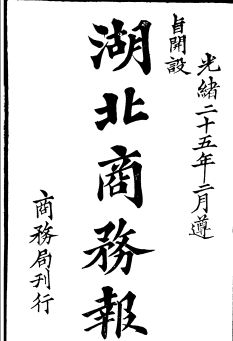 光緒二十五年二月遵
旨開設
湖北商務報
商務局刊行